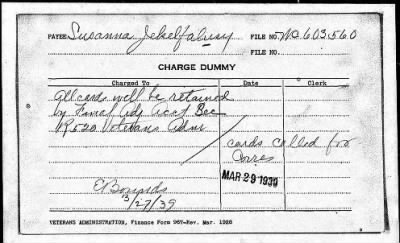 PAYEE Susanna Jekelfalusy FILE NO. WC 603,560
FILE NO.
CHARGE DUMMY
Charged To Date Clerk
All cards will be retained
by Final Adj Acct Sec
R520 Veterans Adm
cards called for
Corres
MAR 29 1939
3/27/39
VETERANS ADMINISTRATION, Finance Form 967—Rev. Mar. 1926